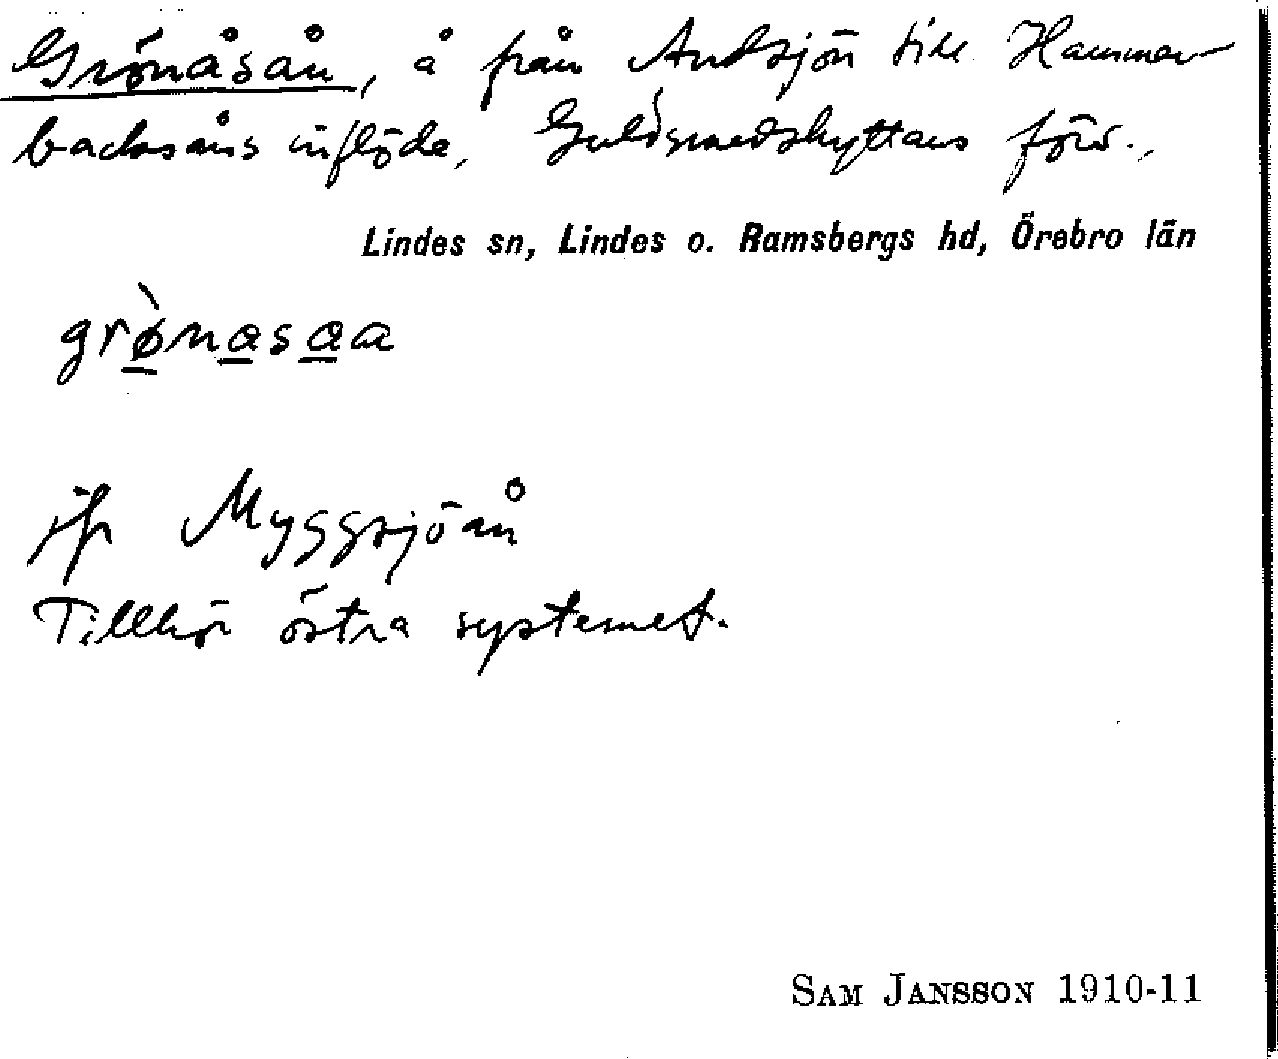 Grönåsån, å från Andsjön till Hammar
backsåns inflöde, Guldsmedshyttans förs.,
Lindes sn, Lindes o. Ramsbergs hd, Örebro län
grø̀nasaa
jfr Myggsjöån
Tillhör östra systemet.
SAM JANSSON 1910-11